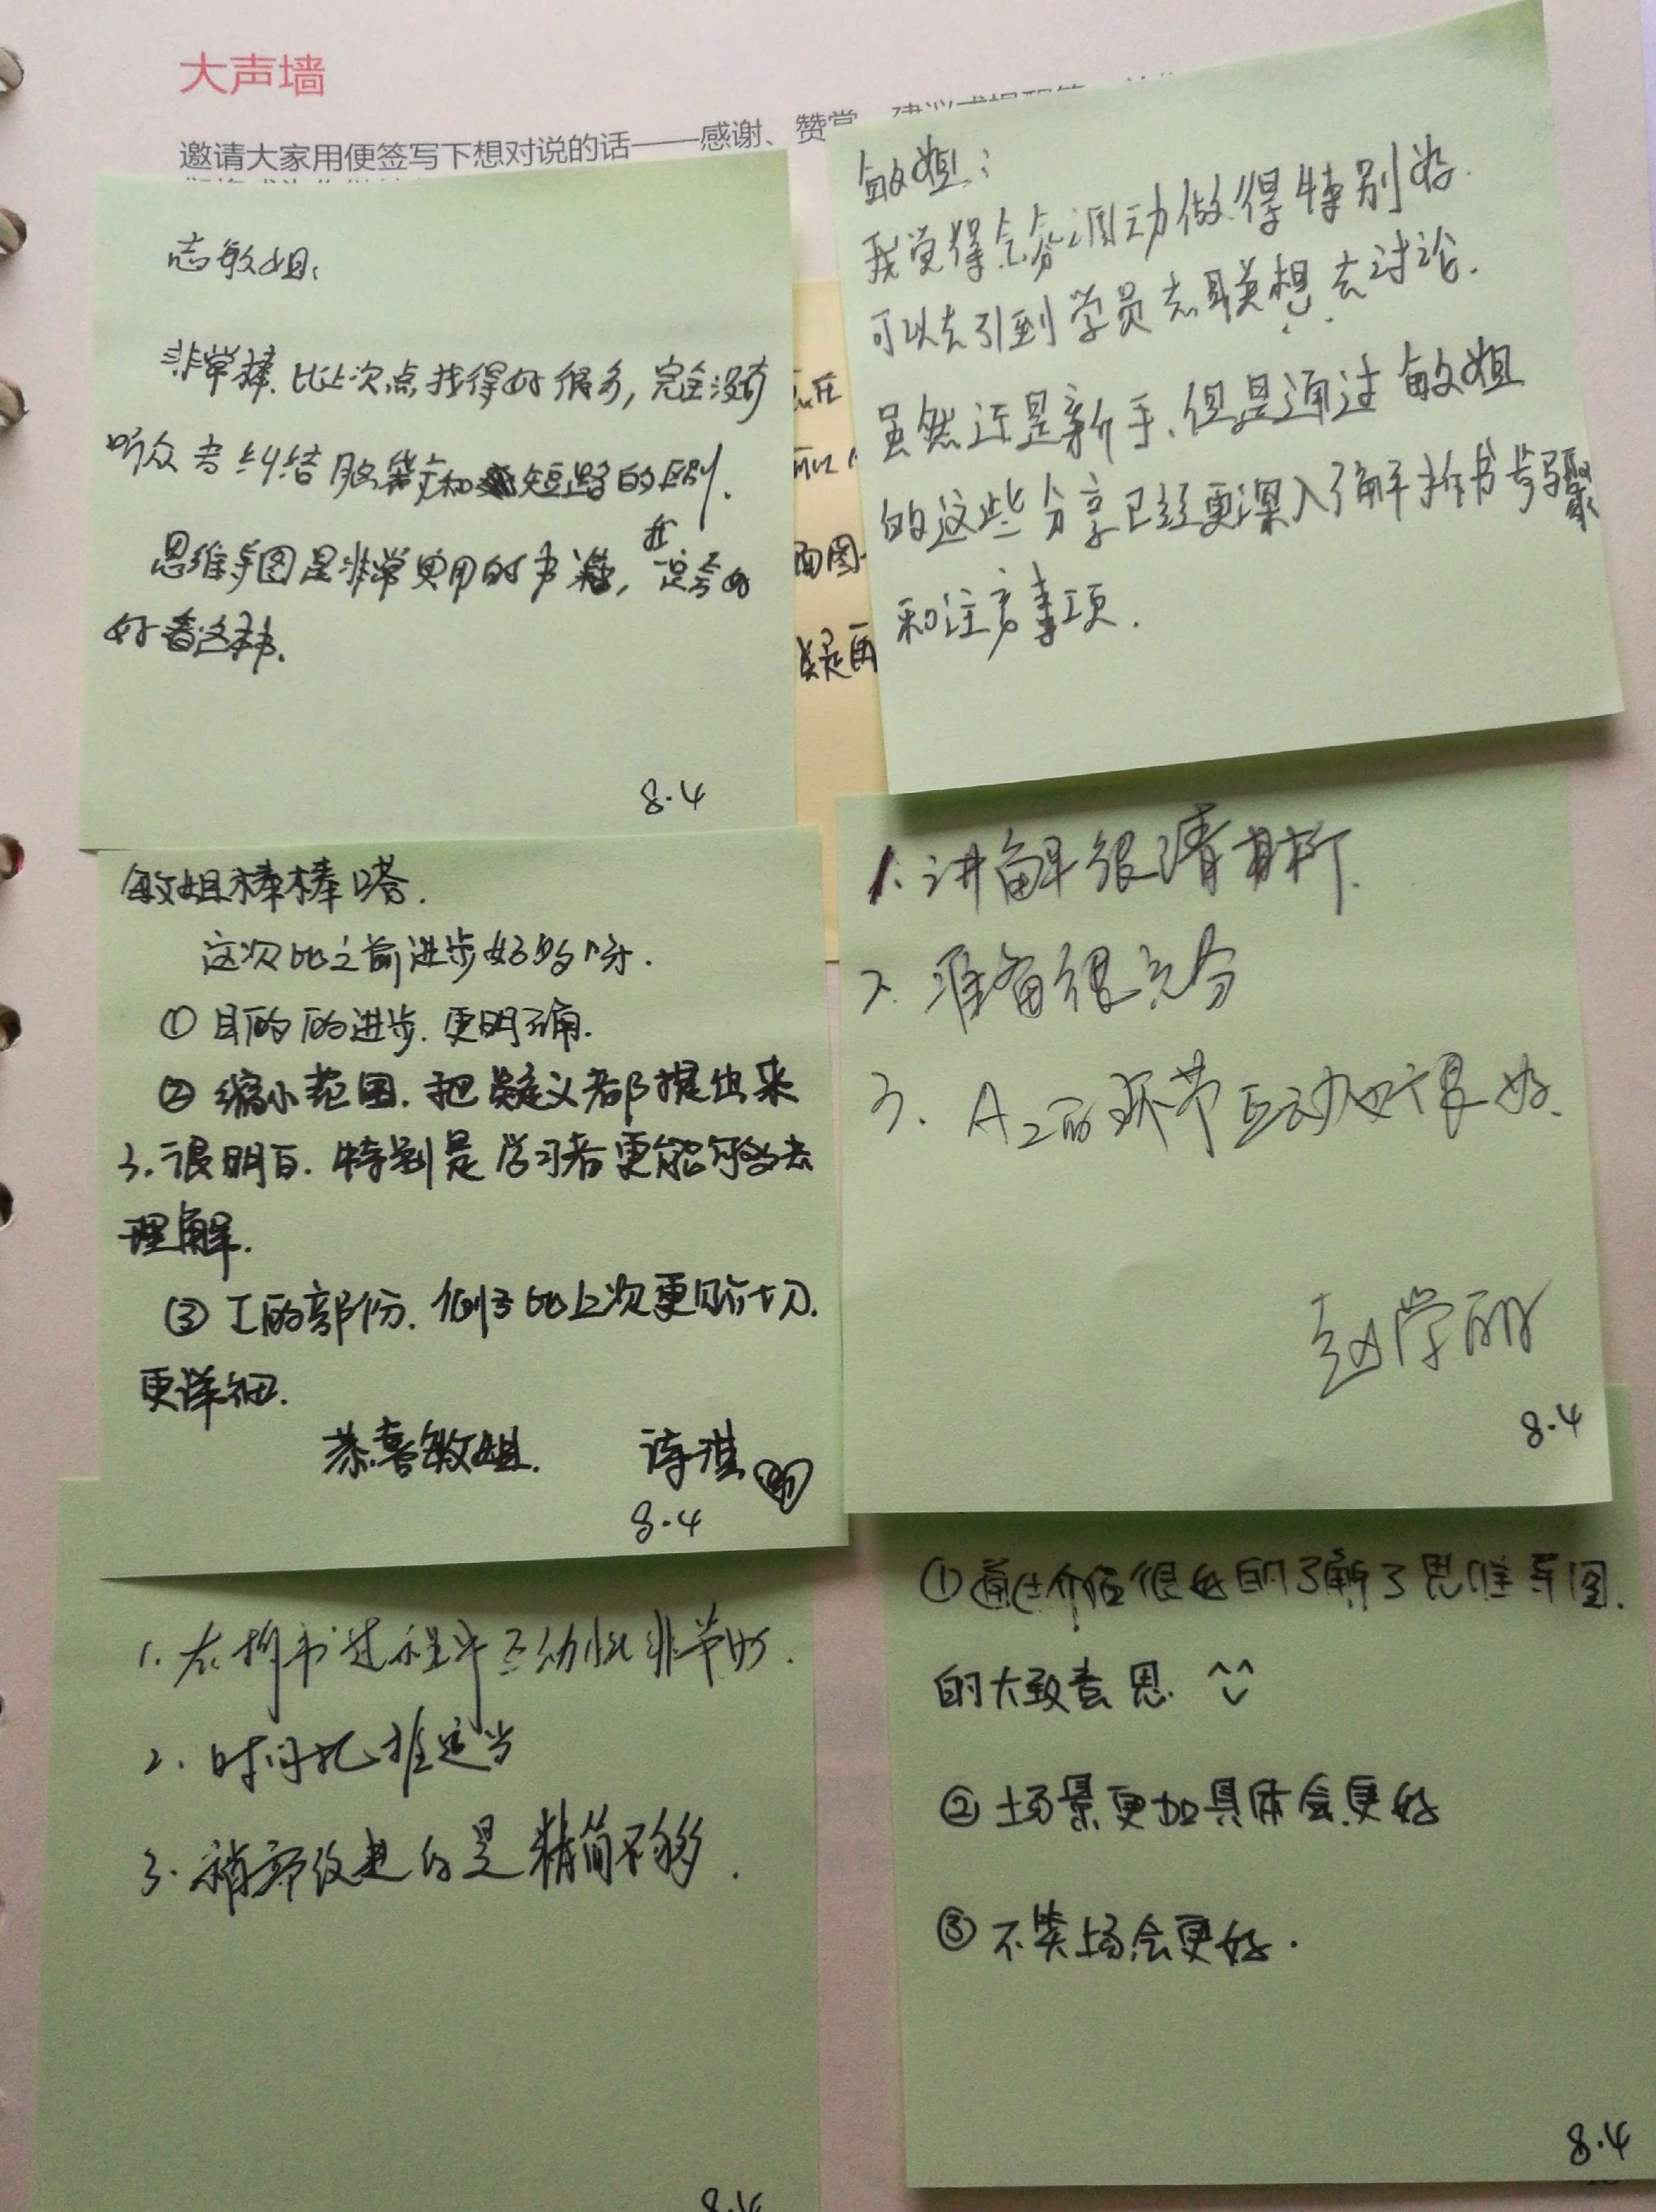 大声墙
邀请大家用便签写下想对说的话——感谢、赞赏、
志敏姐:
非常棒.比上次点找得好很多,完全没有
听众者纠结脑袋和短路的区别.
思维导图是非常实用的书籍,我一定会好
好看这本书.
8.4
敏姐:
我觉得气氛调动做得特别好.
可以去引到学员去联想、去讨论.
虽然还是新手、但是通过敏姐
的这些分享已经更深入了解拆书步骤
和注意事项.
面图
疑是面
敏姐棒棒嗒.
这次比之前进步好多呀.
①目的的进步.更明确.
②缩小范围.把疑义都提出来
3.很明白.特别是学习者更能够去
理解.
③I的部份.例子比上次更贴切.
更详细.
恭喜敏姐. 诗淇
8.4
1.讲解很清晰.
2.准备很充分
3. A2的环节互动也很好.
赵学丽
8.4
1.在拆书过程中互动性非常好.
2.时间把握适当
3.稍许改进的是精简不够.
8.4
①通过介绍很好的了解了思维导图.
的大致意思 ^^
②场景更加具体会更好
③不笑场会更好.
8.4